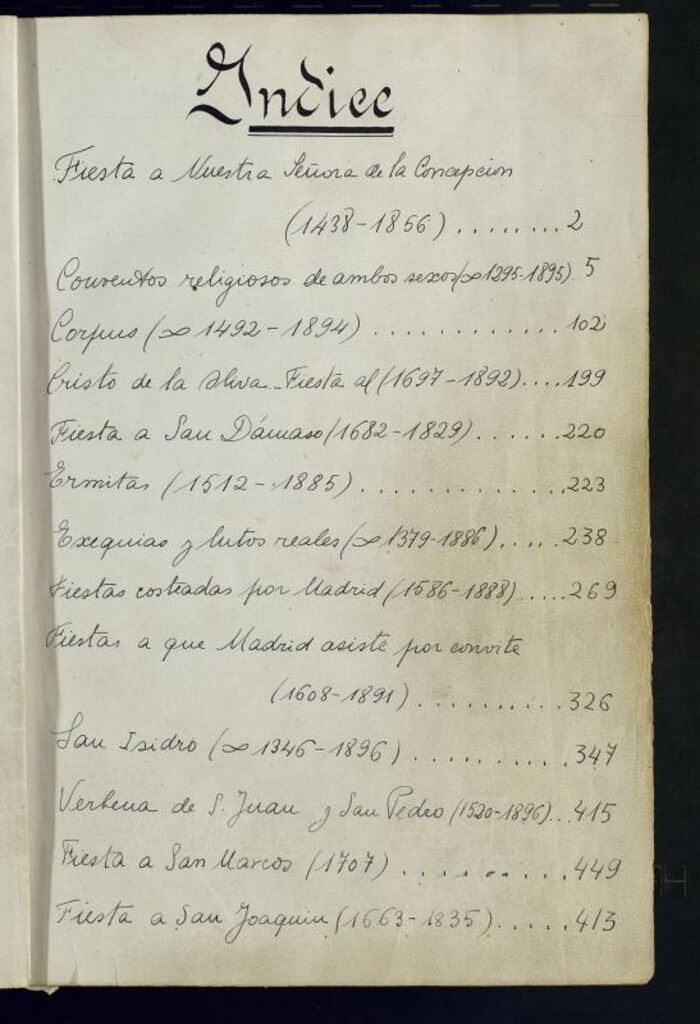 Indice
Fiesta a Nuestra Señora de la Concepcion
(1438-1856) ......... 2
Conventos religiosos de ambos sexos (∞1295-1895). 5
Corpus (∞ 1492-1894) ............. 102
Cristo de la Oliva. Fiesta al (1697-1892).... 199
Fiesta a San Dámaso (1682-1829) ...... 220
Ermitas (1512-1885) ............. 223
Exequias y lutos reales (∞ 1379-1886) ..... 238
Fiestas costeadas por Madrid (1586-1888) ..... 269
Fiestas a que Madrid asiste por convite
(1608-1891) .......... 326
San Isidro (∞ 1346-1896) .......... 347
Verbena de S. Juan y San Pedro (1520-1896)... 415
Fiesta a San Marcos (1707) .......... 449
Fiesta a San Joaquin (1663-1835) ...... 413